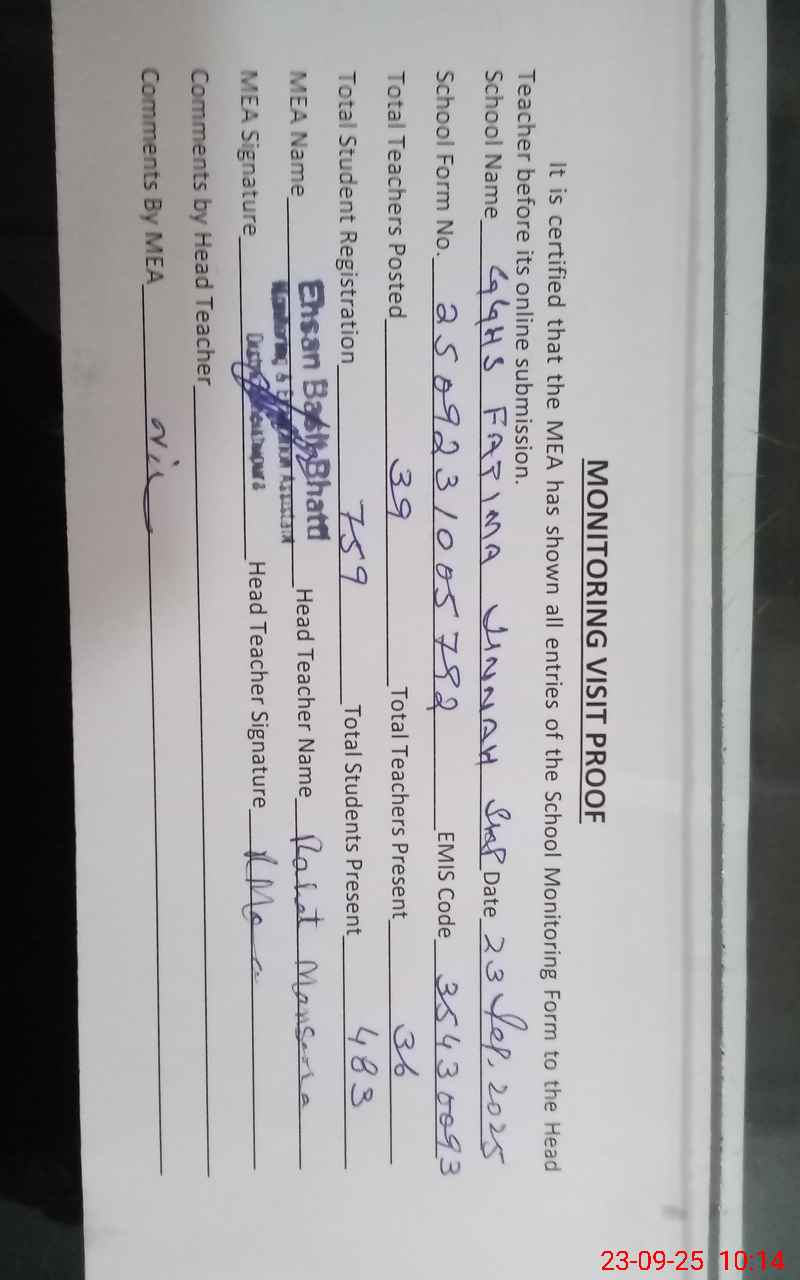 MONITORING VISIT PROOF
It is certified that the MEA has shown all entries of the School Monitoring Form to the Head
Teacher before its online submission.
School Name GGHS FATIMA JINNAH SKP Date 23 Sep, 2025
School Form No. 250923 1005782 EMIS Code 35430093
Total Teachers Posted 39 Total Teachers Present 36
Total Student Registration 759 Total Students Present 483
MEA Name Ehsan Basir Bhatti Head Teacher Name Rahat Mansoora
Monitoring & Evaluation Assistant
MEA Signature Distt. Sheikhupura Head Teacher Signature
Comments by Head Teacher
Comments By MEA Nil
23-09-25 10:14